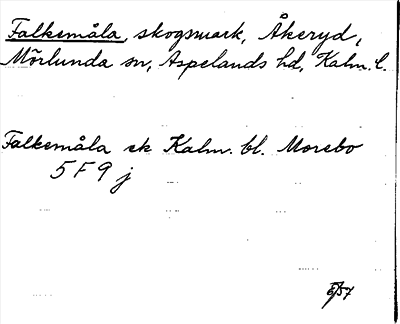 Falkemåla, skogsmark, Åkeryd,
Mörlunda sn, Aspelands hd, Kalm. l.
Falkemåla ek Kalm. bl. Morebo
5 F 9 j